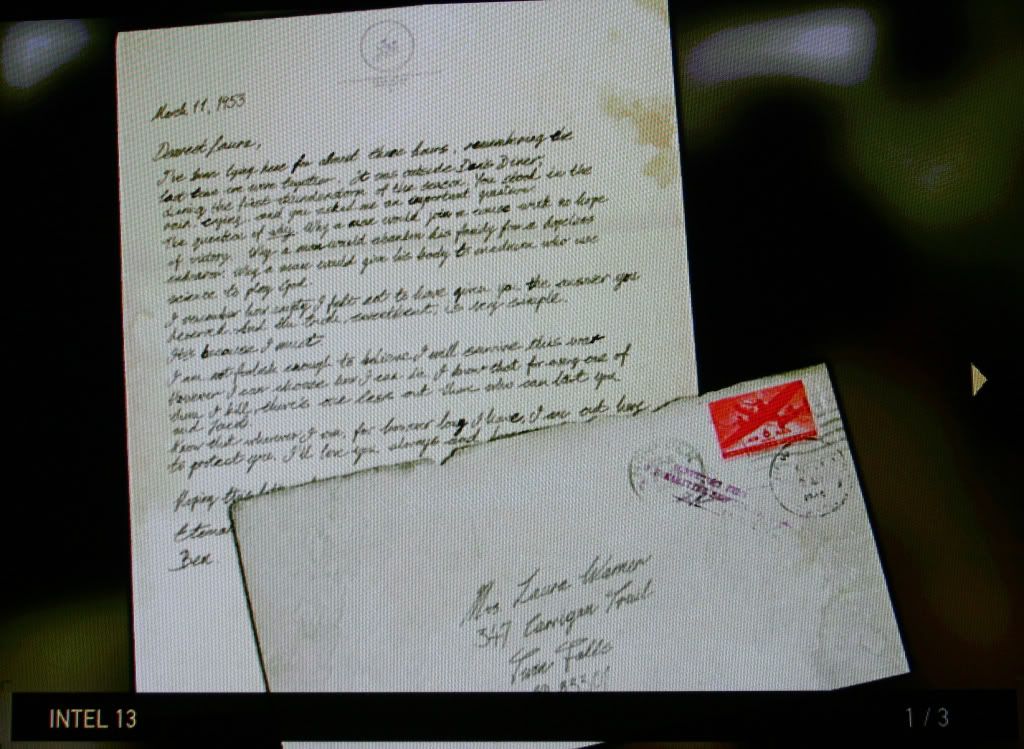 March 11, 1953
Dearest Laura,
I've been lying here for almost three hours, remembering the
last time we were together. It was outside Dan's Diner,
during the first thunderstorm of the season. You stood in the
rain, crying, and you asked me an important question.
The question of why. Why a man would join a cause with no hope
of victory. Why a man would abandon his family for a hopeless
endeavor. Why a man would give his body to madmen who use
science to play God.
I remember how empty I felt not to have given you the answer you
deserved. And the truth, sweetheart, is very simple.
It's because I must.
I am not foolish enough to believe I will survive this war.
However I can choose how I can die. I know that for every one of
them I kill, there's one less out there who can hurt you
and
Know that wherever I am, for however long I have, I am out here
to protect you. I'll love you always and
Ben
Mrs Laura Warner
347 Carrigan Trail
Twin Falls
INTEL 13
1 / 3